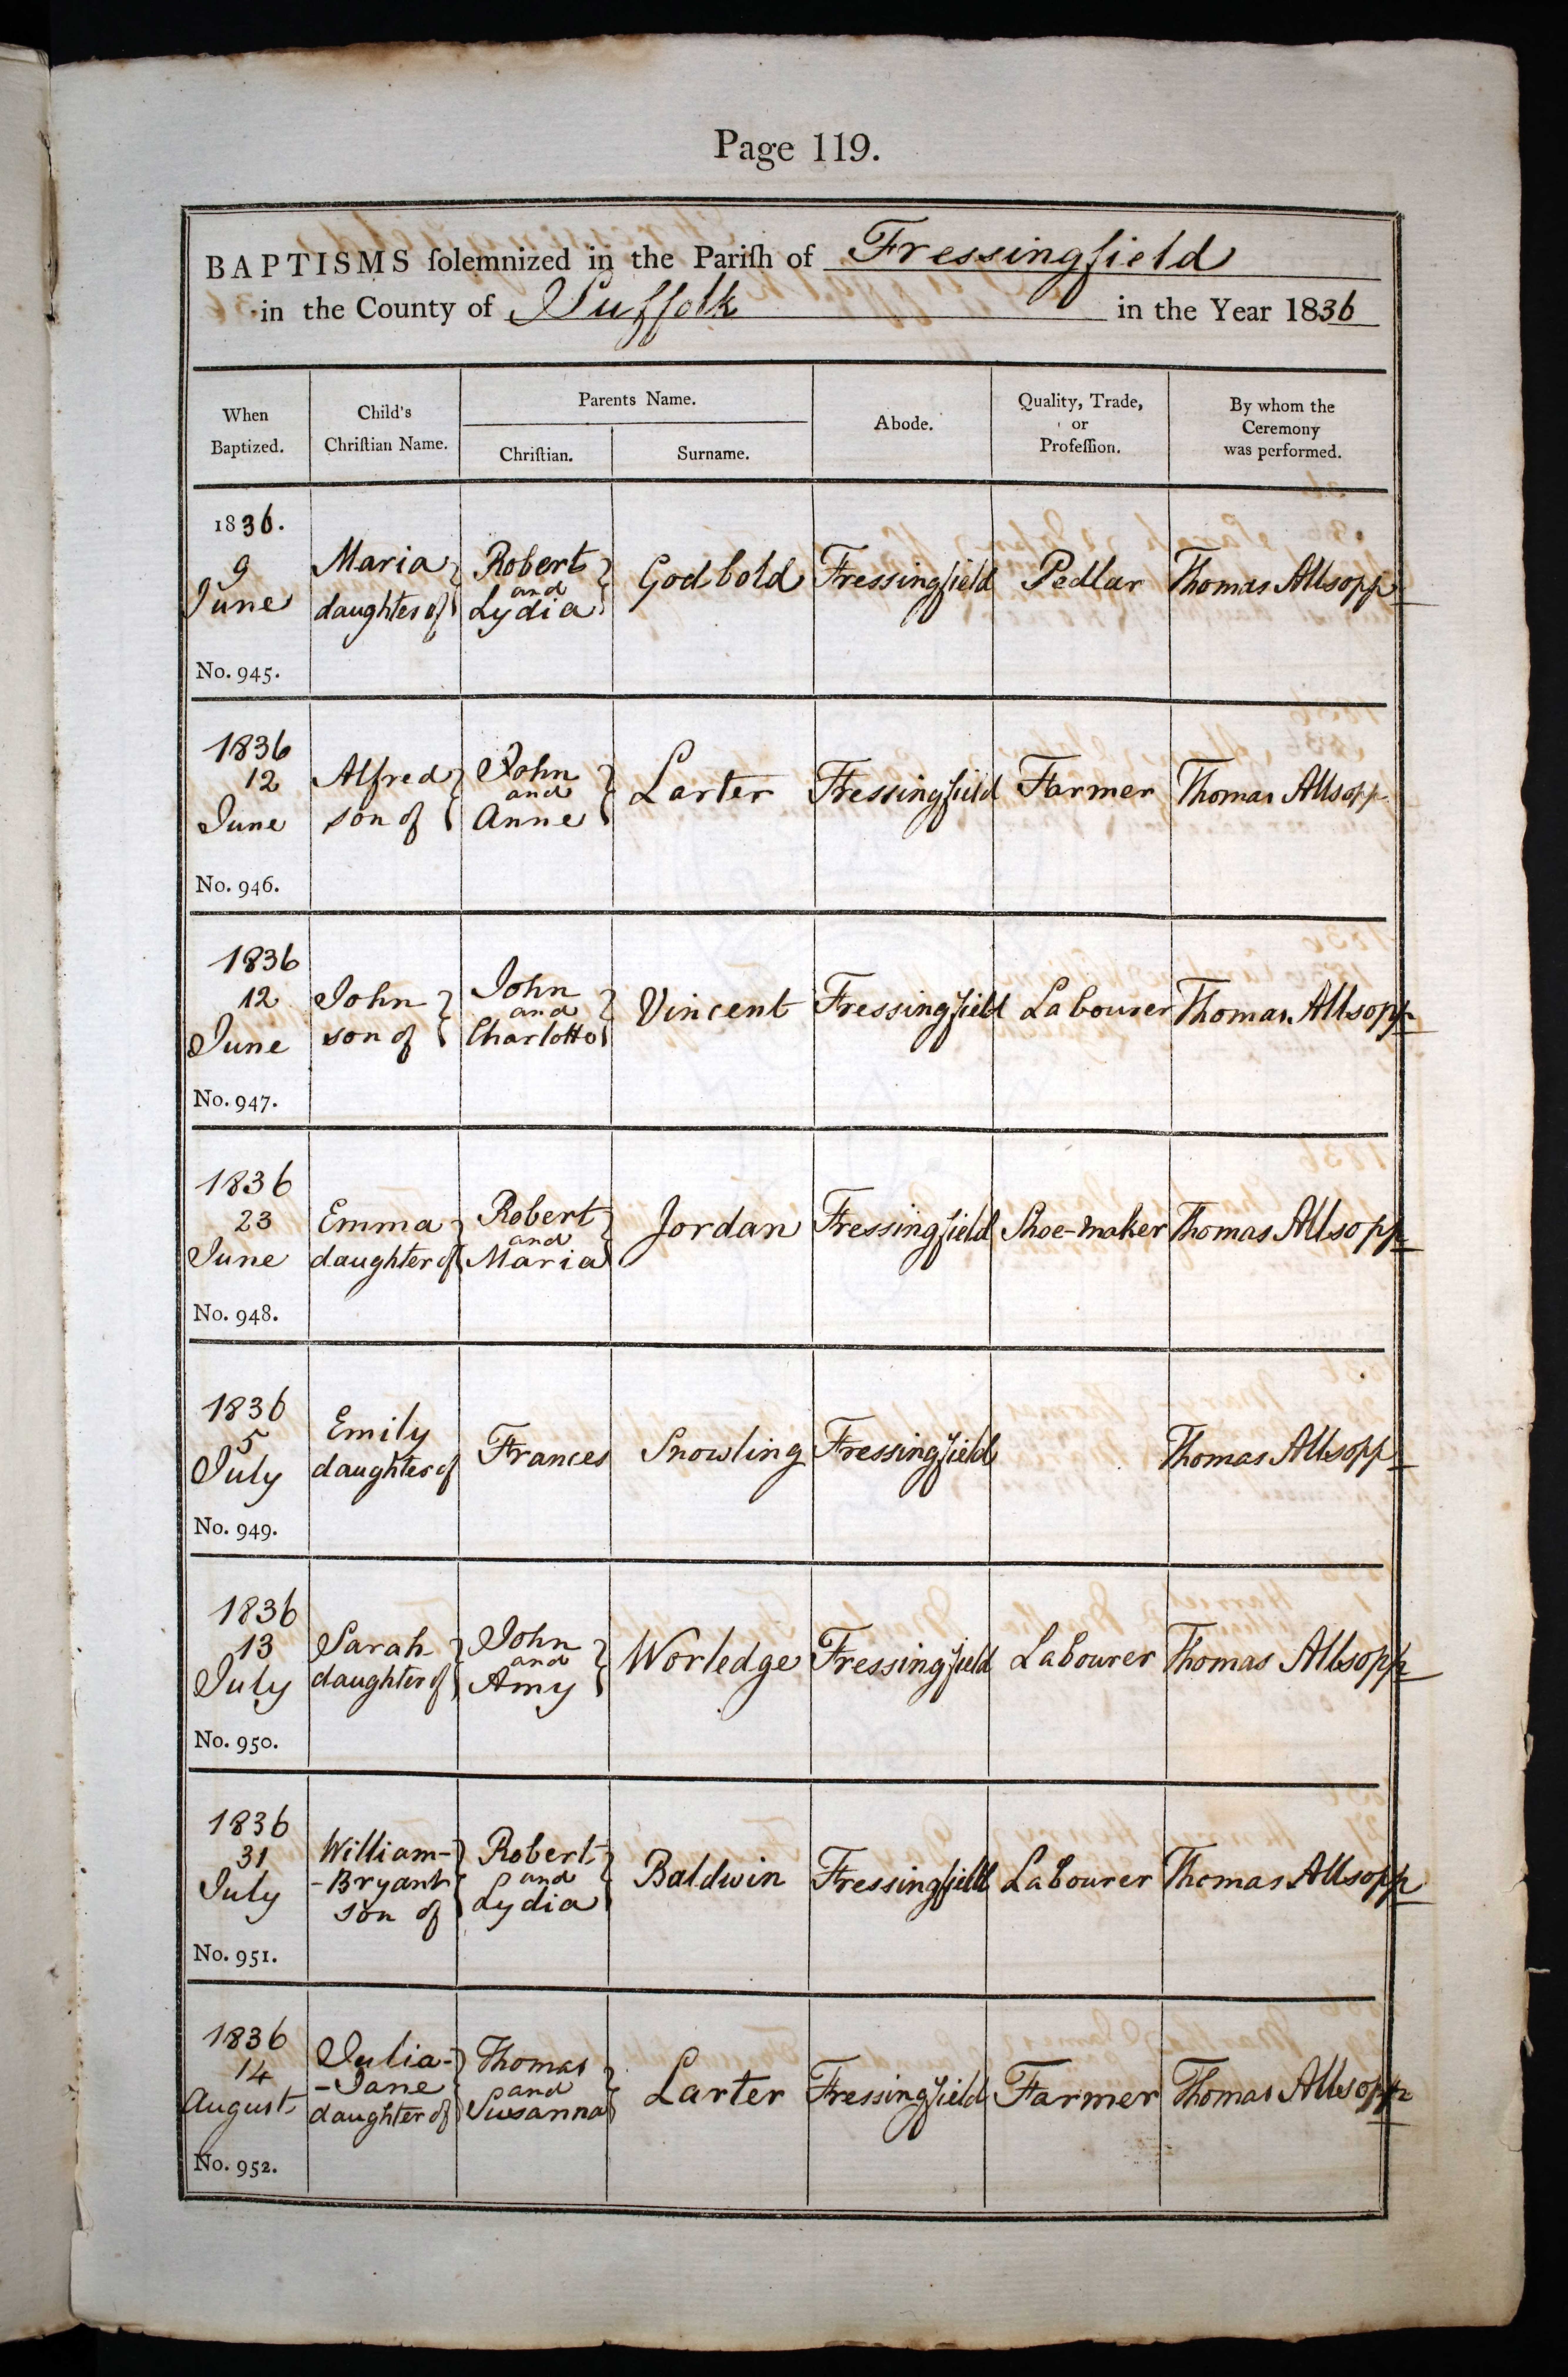 Page 119.
BAPTISMS ſolemnized in the Pariſh of Fressingfield
in the County of Suffolk in the Year 1836
When
Baptized.
Child's
Chriſtian Name.
Parents Name.
Chriſtian.
Surname.
Abode.
Quality, Trade,
or
Profeſſion.
By whom the
Ceremony
was performed.
1836.
9
June
No. 945.
Maria
daughter of
Robert
and
Lydia
Godbold
Fressingfield
Pedlar
Thomas Allsopp
1836
12
June
No. 946.
Alfred
son of
John
and
Anne
Larter
Fressingfield
Farmer
Thomas Allsopp
1836
12
June
No. 947.
John
son of
John
and
Charlotte
Vincent
Fressingfield
Labourer
Thomas Allsopp
1836
23
June
No. 948.
Emma
daughter of
Robert
and
Maria
Jordan
Fressingfield
Shoe-maker
Thomas Allsopp
1836
5
July
No. 949.
Emily
daughter of
Frances
Snowling
Fressingfield
Thomas Allsopp
1836
13
July
No. 950.
Sarah
daughter of
John
and
Amy
Worledge
Fressingfield
Labourer
Thomas Allsopp
1836
31
July
No. 951.
William-
-Bryant
son of
Robert
and
Lydia
Baldwin
Fressingfield
Labourer
Thomas Allsopp
1836
14
August
No. 952.
Julia-
-Jane
daughter of
Thomas
and
Susanna
Larter
Fressingfield
Farmer
Thomas Allsopp